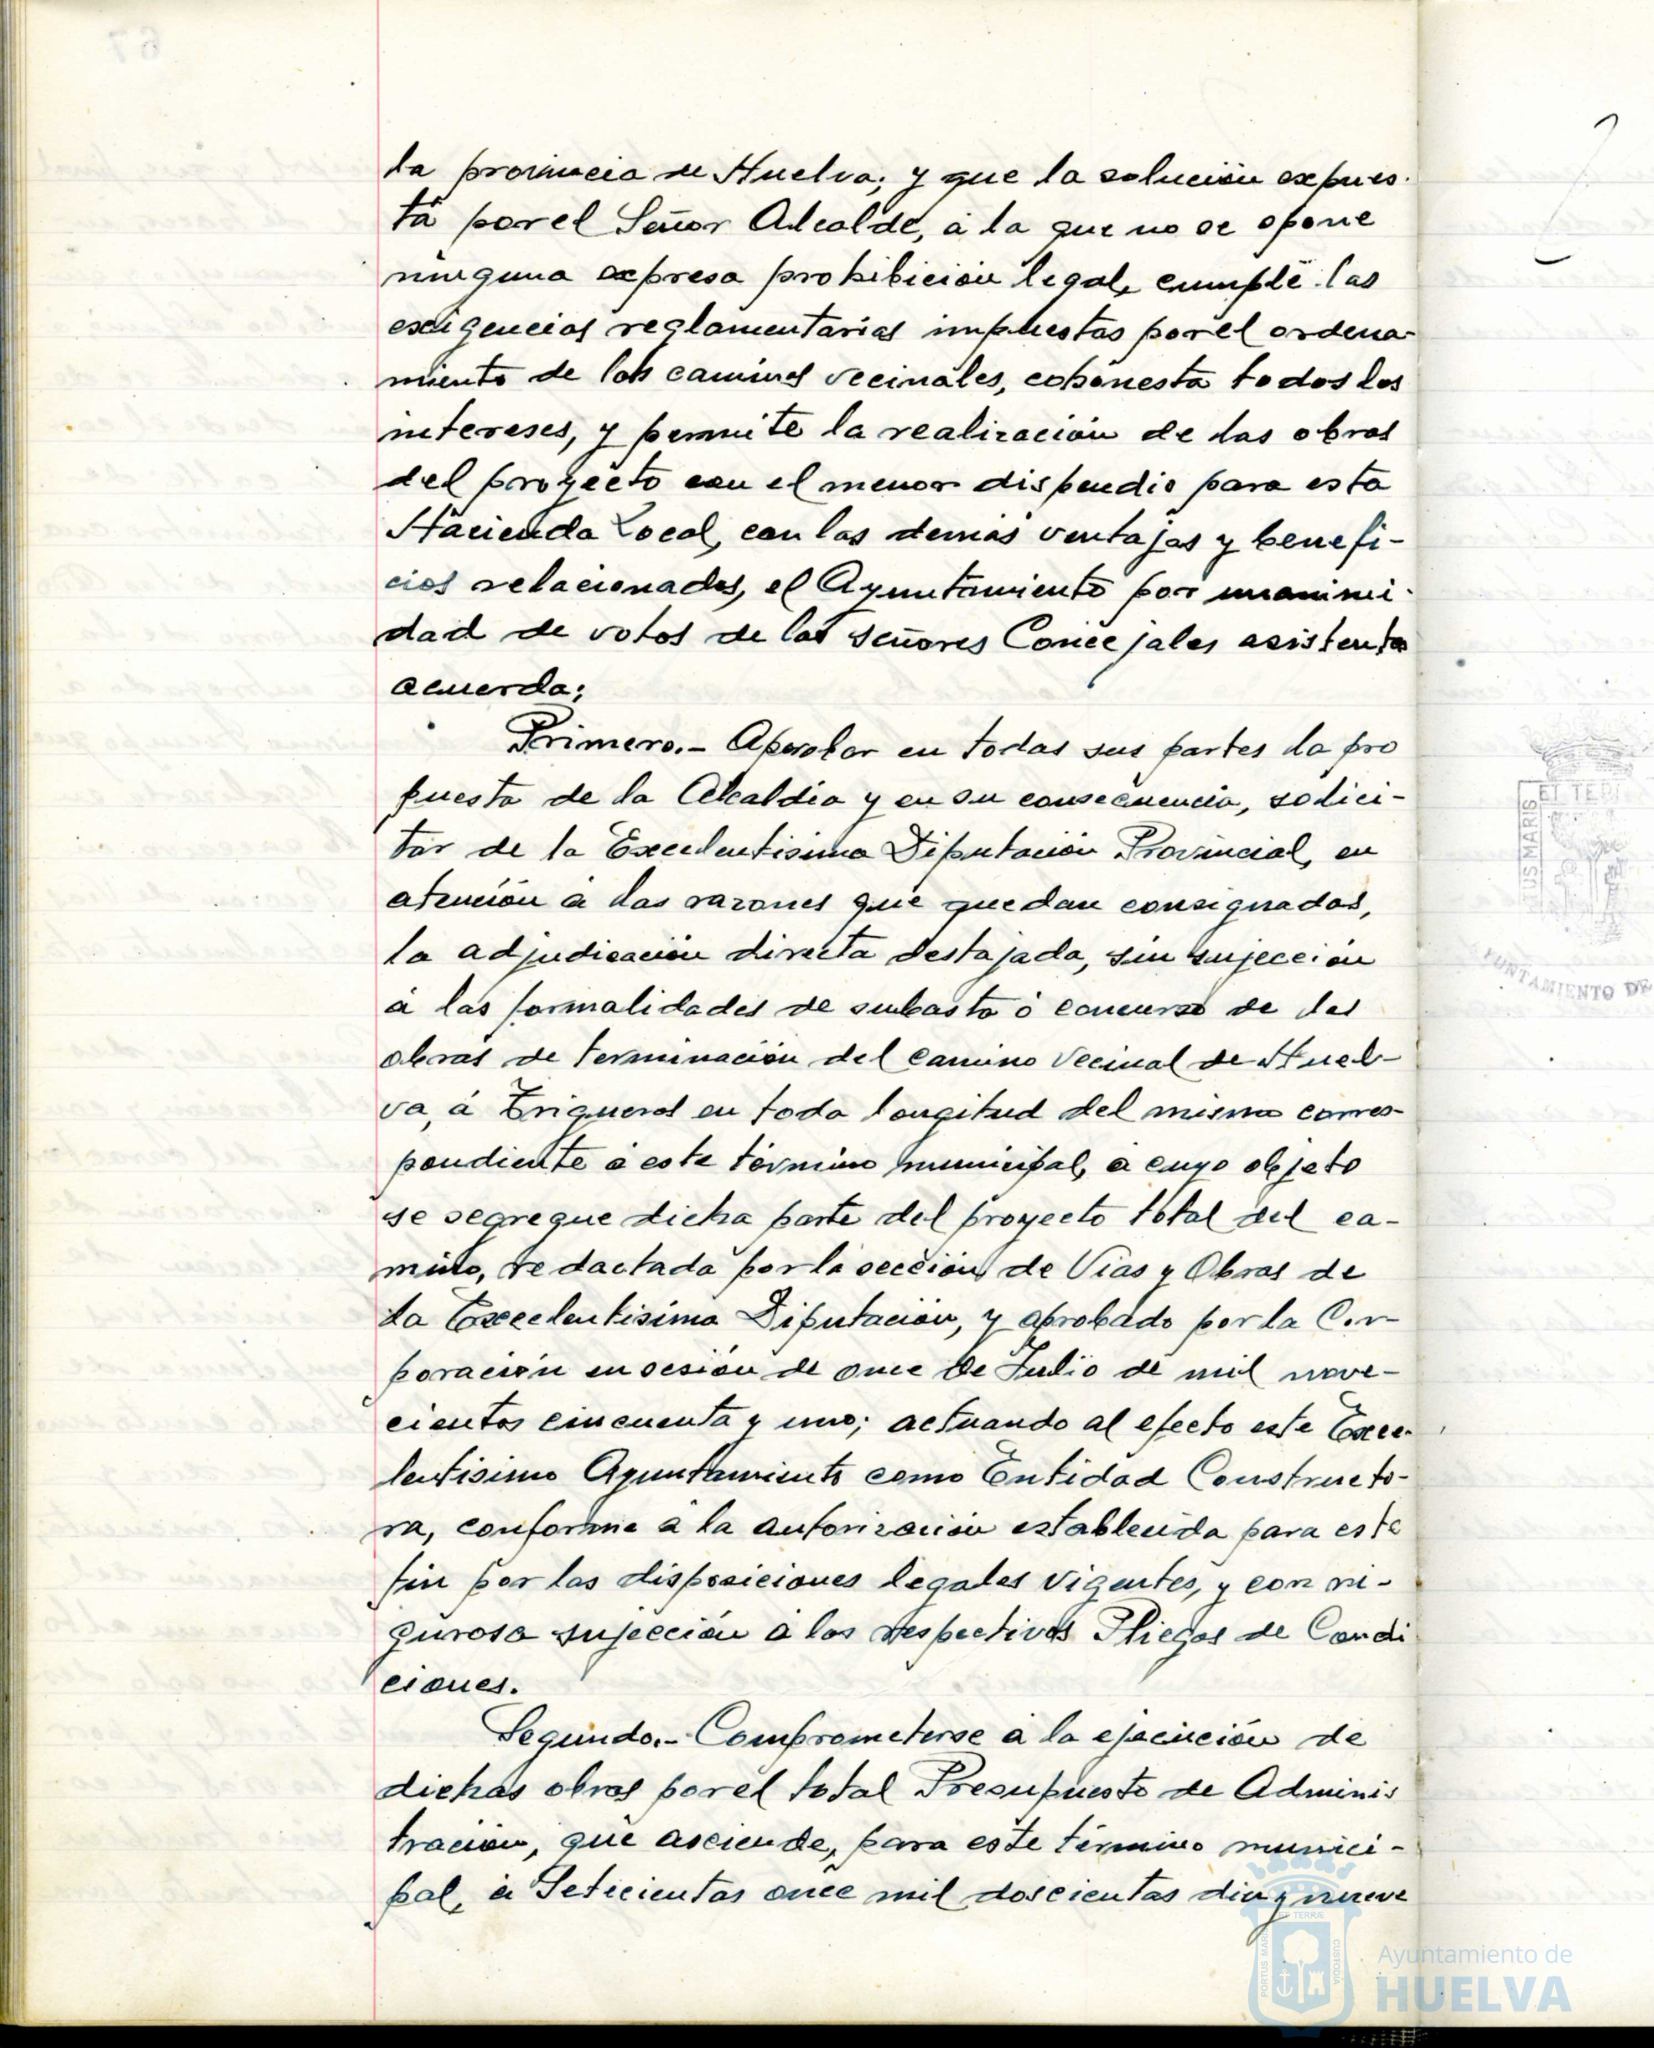 la provincia de Huelva; y que la solución expues-
ta por el Señor Alcalde, á la que no se opone
ninguna expresa prohibición legal, cumple las
exigencias reglamentarias impuestas por el ordena-
miento de los caminos vecinales, cohonesta todos los
intereses, y permite la realización de las obras
del proyecto con el menor dispendio para esta
Hacienda Local, con las demás ventajas y benefi-
cios relacionados, el Ayuntamiento por unanimi-
dad de votos de los señores Concejales asistentes
acuerda:
Primero.- Aprobar en todas sus partes la pro
puesta de la Alcaldia y en su consecuencia, solici-
tar de la Excelentisima Diputación Provincial, en
atención á las razones que quedan consignadas,
la adjudicación directa destajada, sin sujección
á las formalidades de subasta ó concurso de las
obras de terminación del camino vecinal de Huel-
va, á Trigueros en toda longitud del mismo corres-
pondiente á este término municipal, á cuyo objeto
se segregue dicha parte del proyecto total del ca-
mino, redactada por la sección de Vias y Obras de
la Excelentisima Diputación, y aprobado por la Cor-
poración en sesión de once de Julio de mil nove-
cientos cincuenta y uno; actuando al efecto este Exce-
lentisimo Ayuntamiento como Entidad Constructo-
ra, conforme á la autorización establecida para este
fin por las disposiciones legales vigentes, y con ri-
gurosa sujección á los respectivos Pliegos de Condi
ciones.
Segundo.- Comprometerse á la ejecución de
dichas obras por el total Presupuesto de Adminis
tración, que asciende, para este término munici-
pal, á Setecientas once mil doscientas diez y nueve
ET TER
US MARIS
YUNTAMIENTO DE
PORTUS MARIS
ET TERRÆ
CUSTODIA
Ayuntamiento de
HUELVA